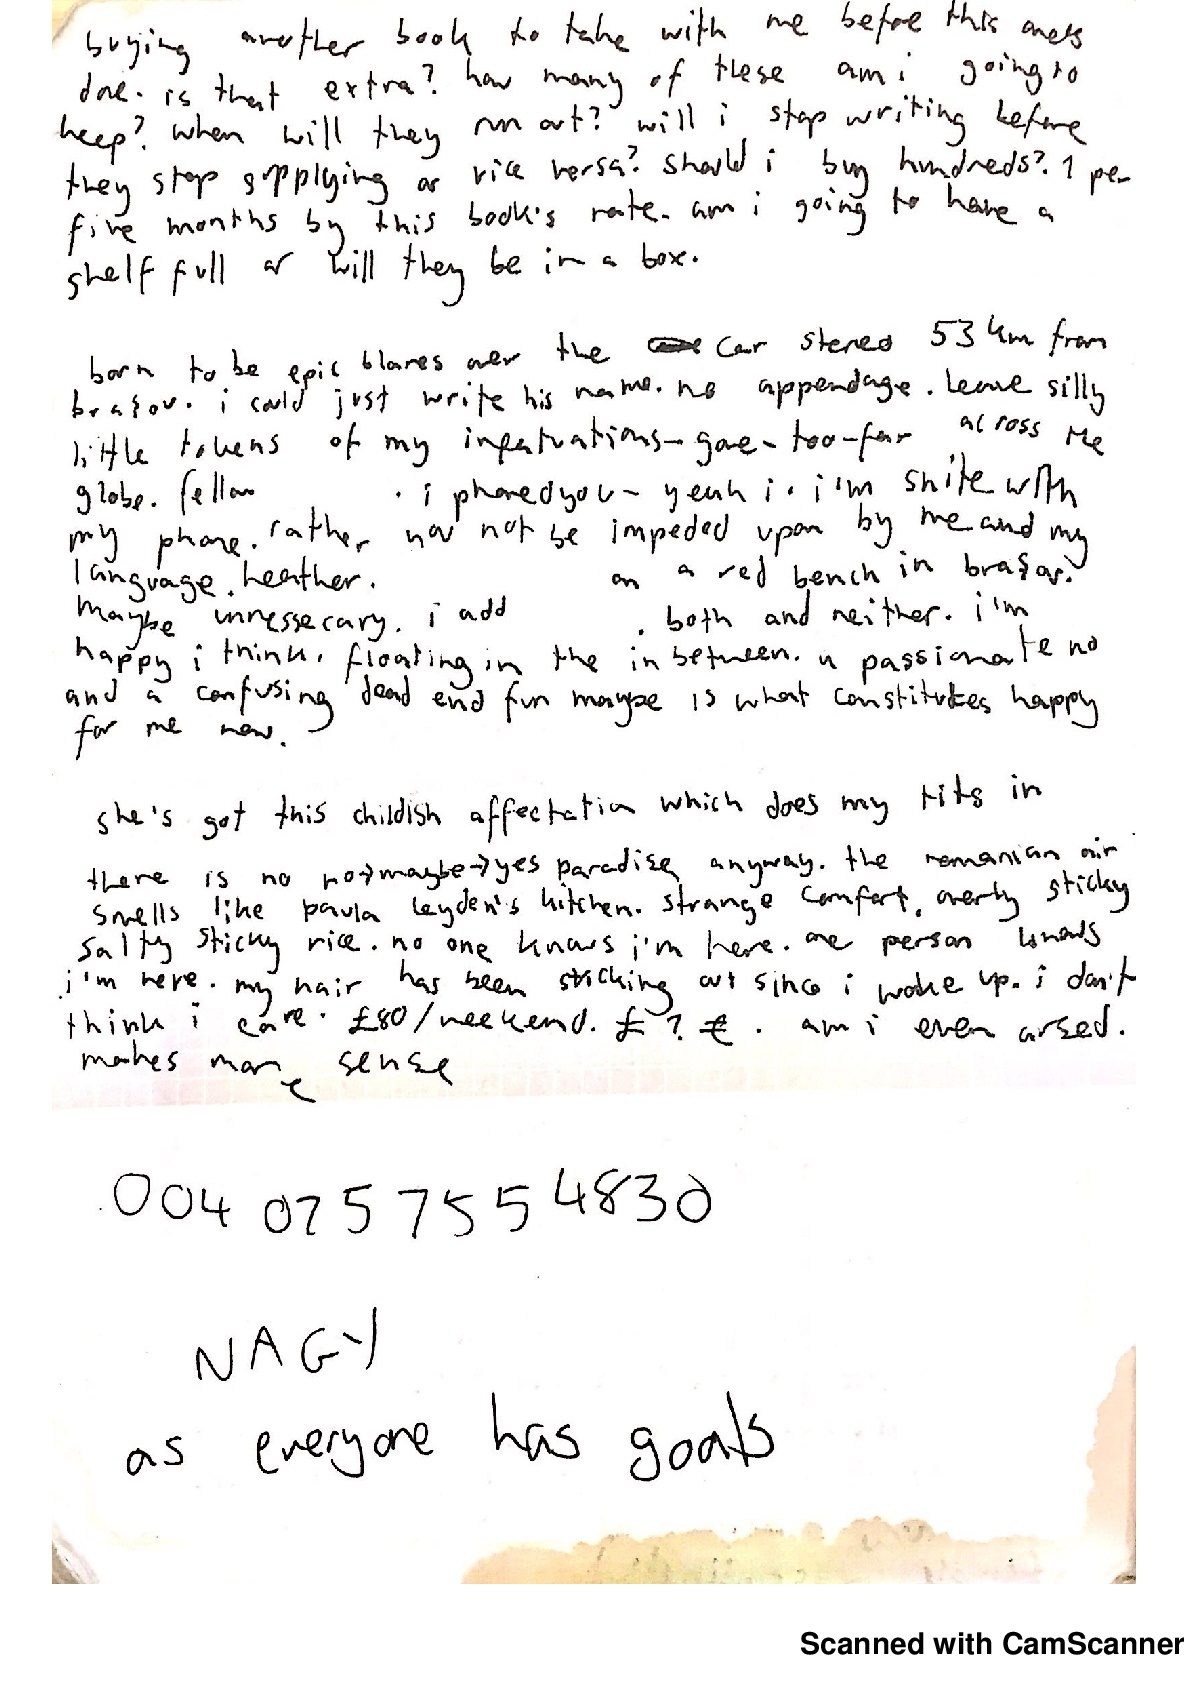 buying another book to take with me before this one's
done. is that extra? how many of these am i going to
keep? when will they run out? will i stop writing before
they stop supplying or vice versa? should i buy hundreds? 1 per
five months by this book's rate. am i going to have a
shelf full or will they be in a box.
born to be epic blares over the car stereo 53 km from
brașov. i could just write his name. no appendage. leave silly
little tokens of my infatuations-gone-too-far across the
globe. fellow . i phoned you - yeah i. i'm shite with
my phone. rather you not be impeded upon by me and my
language. heather. on a red bench in brașov.
maybe unnessecary. i add . both and neither. i'm
happy i think. floating in the in between. a passionate no
and a confusing dead end fun maybe is what constitutes happy
for me now.
she's got this childish affectation which does my tits in
there is no no→maybe→yes paradise anyway. the romanian air
smells like paula leyden's kitchen. strange comfort, overly sticky
salty sticky rice. no one knows i'm here. one person knows
i'm here. my hair has been sticking out since i woke up. i don't
think i care. £80/weekend. £ ? €. am i even arsed.
makes more sense
004 0757554830
NAGY
as everyone has goals
Scanned with CamScanner